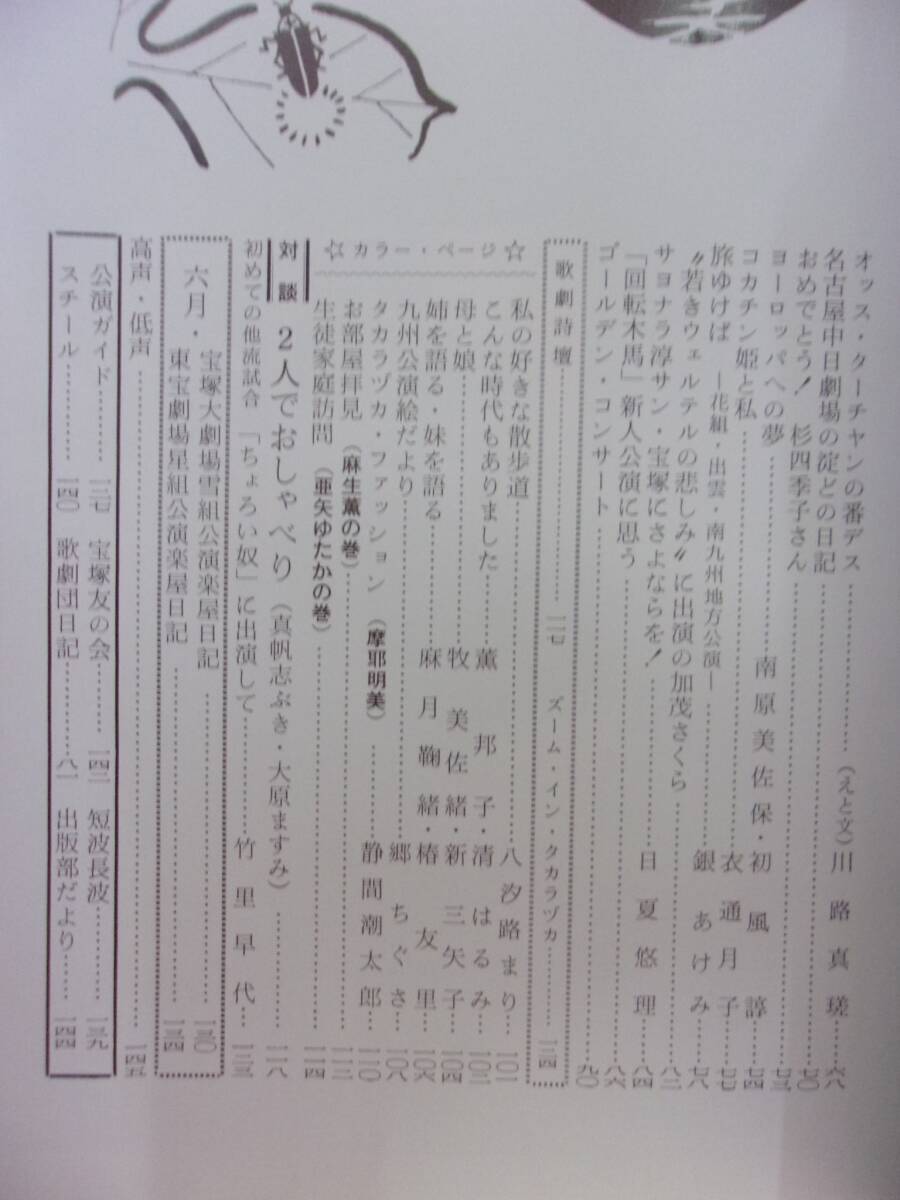 オッス・ターチャンの番デス……………(えと文)川路真瑳…六八
名古屋中日劇場の淀どの日記……………七〇
おめでとう! 杉四季子さん……………七三
ヨーロッパへの夢……………南原美佐保・初風諄…七四
コカチン姫と私……………衣通月子…七七
旅ゆけば ―花組・出雲・南九州地方公演―……………銀あけみ…七八
“若きウェルテルの悲しみ”に出演の加茂さくら……………八二
サヨナラ淳サン・宝塚にさよならを!……………日夏悠理…八四
「回転木馬」新人公演に思う……………八六
ゴールデン・コンサート……………九〇
歌劇詩壇……………一一七 ズーム・イン・タカラヅカ……………一二四
☆カラー・ページ☆
私の好きな散歩道……………八汐路まり…一〇一
こんな時代もありました……………薫邦子・清はるみ…一〇二
母と娘……………牧美佐緒・新三矢子…一〇四
姉を語る・妹を語る……………麻月鞠緒・椿友里…一〇六
九州公演絵だより……………郷ちぐさ…一〇八
タカラヅカ・ファッション(摩耶明美)……………静間潮太郎…一一〇
お部屋拝見(麻生薫の巻)……………一一二
生徒家庭訪問(亜矢ゆたかの巻)……………一一四
対談 2人でおしゃべり(真帆志ぶき・大原ますみ)……………一一八
初めての他流試合 「ちょろい奴」に出演して……………竹里早代…一二三
六月・宝塚大劇場雪組公演楽屋日記……………一三〇
東宝劇場星組公演楽屋日記……………一三四
高声・低声……………一四五
公演ガイド……………一三七 宝塚友の会……………一四二 短波長波……………一三九
スチール……………一四〇 歌劇団日記……………八一 出版部だより……………一四四